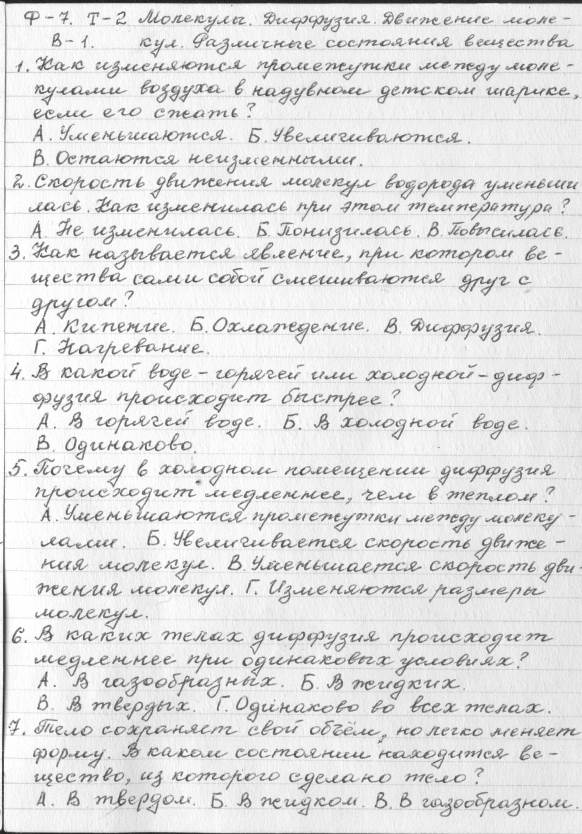 Ф-7. Т-2 Молекулы. Диффузия. Движение моле-
В-1. кул. Различные состояния вещества
1. Как изменяются промежутки между моле-
кулами воздуха в надувном детском шарике,
если его сжать?
А. Уменьшаются. Б. Увеличиваются.
В. Остаются неизменными.
2. Скорость движения молекул водорода уменьши
лась. Как изменилась при этом температура?
А. Не изменилась. Б. Понизилась. В. Повысилась.
3. Как называется явление, при котором ве-
щества сами собой смешиваются друг с
другом?
А. Кипение. Б. Охлаждение. В. Диффузия.
Г. Нагревание.
4. В какой воде - горячей или холодной - диф-
фузия происходит быстрее?
А. В горячей воде. Б. В холодной воде.
В. Одинаково.
5. Почему в холодном помещении диффузия
происходит медленнее, чем в теплом?
А. Уменьшаются промежутки между молеку-
лами. Б. Увеличивается скорость движе-
ния молекул. В. Уменьшается скорость дви-
жения молекул. Г. Изменяются размеры
молекул.
6. В каких телах диффузия происходит
медленнее при одинаковых условиях?
А. В газообразных. Б. В жидких.
В. В твердых. Г. Одинаково во всех телах.
7. Тело сохраняет свой объём, но легко меняет
форму. В каком состоянии находится ве-
щество, из которого сделано тело?
А. В твердом. Б. В жидком. В. В газообразном.